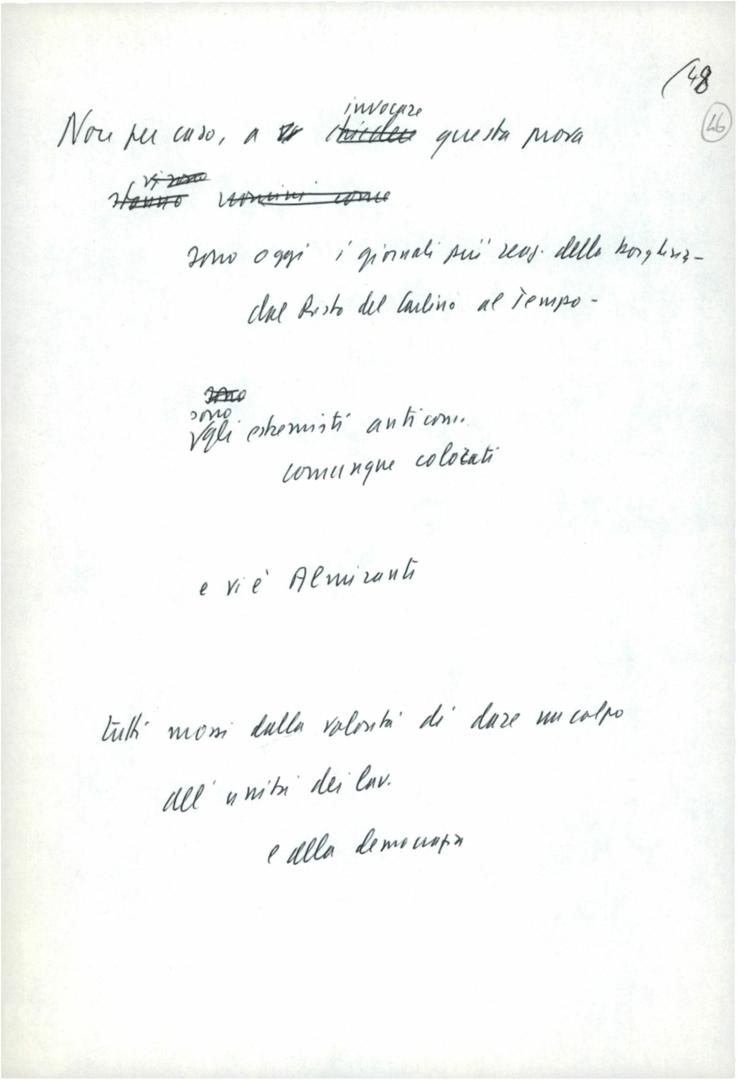 (48
46
invocare
Non per caso, a chiedere questa prova
vi sono
stanno uomini come
sono oggi i giornali più reaz. della borghesia -
dal Resto del Carlino al Tempo -
sono
sono
gli estremisti anticom.
comunque colorati
e vi è Almiranti
tutti mossi dalla volontà di dare un colpo
all'unità dei lav.
e alla democrazia